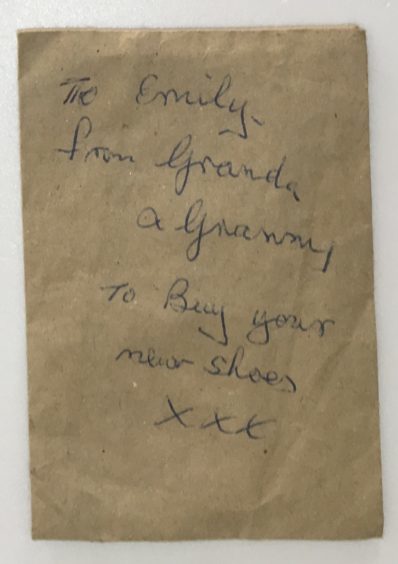 To Emily
from Granda
a Granny
To Buy your
new shoes
XXX